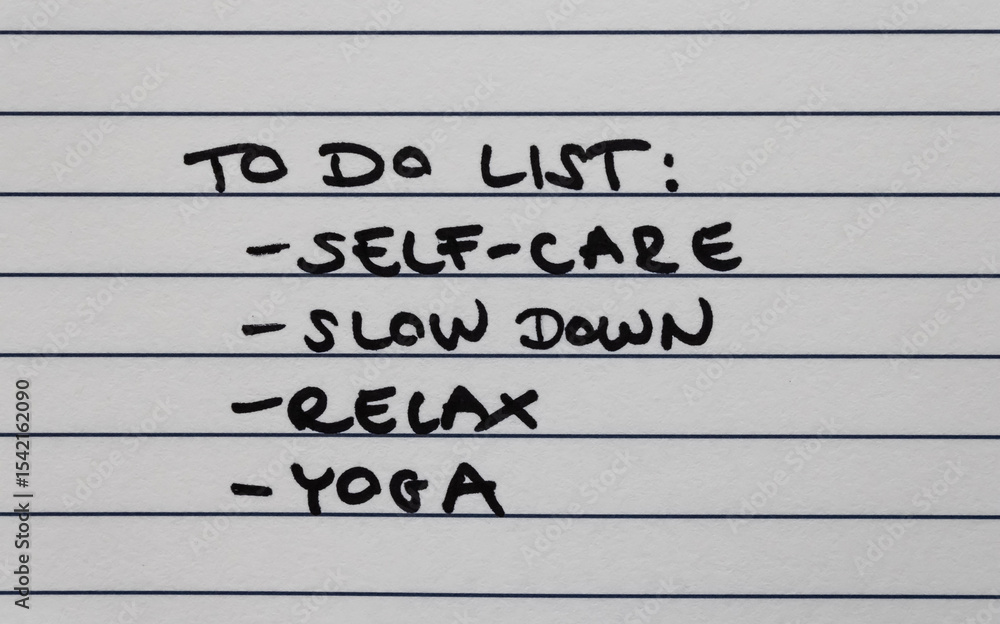 TO DO LIST:
- SELF-CARE
- SLOW DOWN
- RELAX
- YOGA
Adobe Stock | #1542162090